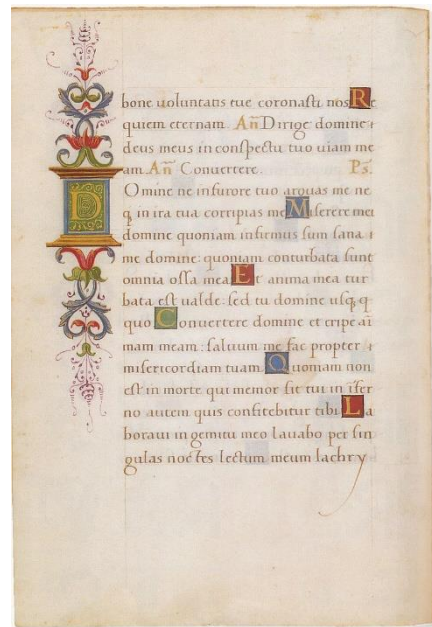 bone uoluntatis tue coronasti nos Re
quiem eternam. Añ Dirige domine
deus meus in conspectu tuo uiam me
am. Añ Conuertere. Ps.
Domine ne infurore tuo arguas me ne
q in ira tua corripias me Miserere mei
domine quoniam infirmus sum sana
me domine: quoniam conturbata sunt
omnia ossa mea Et anima mea tur
bata est ualde: sed tu domine usq q
quo Conuertere domine et eripe ai
mam meam: saluum me fac propter
misericordiam tuam. Quoniam non
est in morte qui memor sit tui in ifer
no autem quis confitebitur tibi La
boraui in gemitu meo lauabo per sin
gulas noctes lectum meum lachry